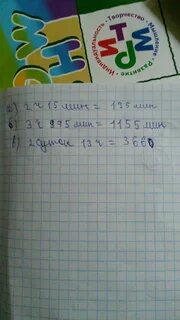 Индивидуальность • Творчество • Мышление • Развитие •
РИТМ
а) 2 ч 15 мин = 135 мин
б) 3 ч 975 мин = 1155 мин
в) 2 суток 13 ч = 3660